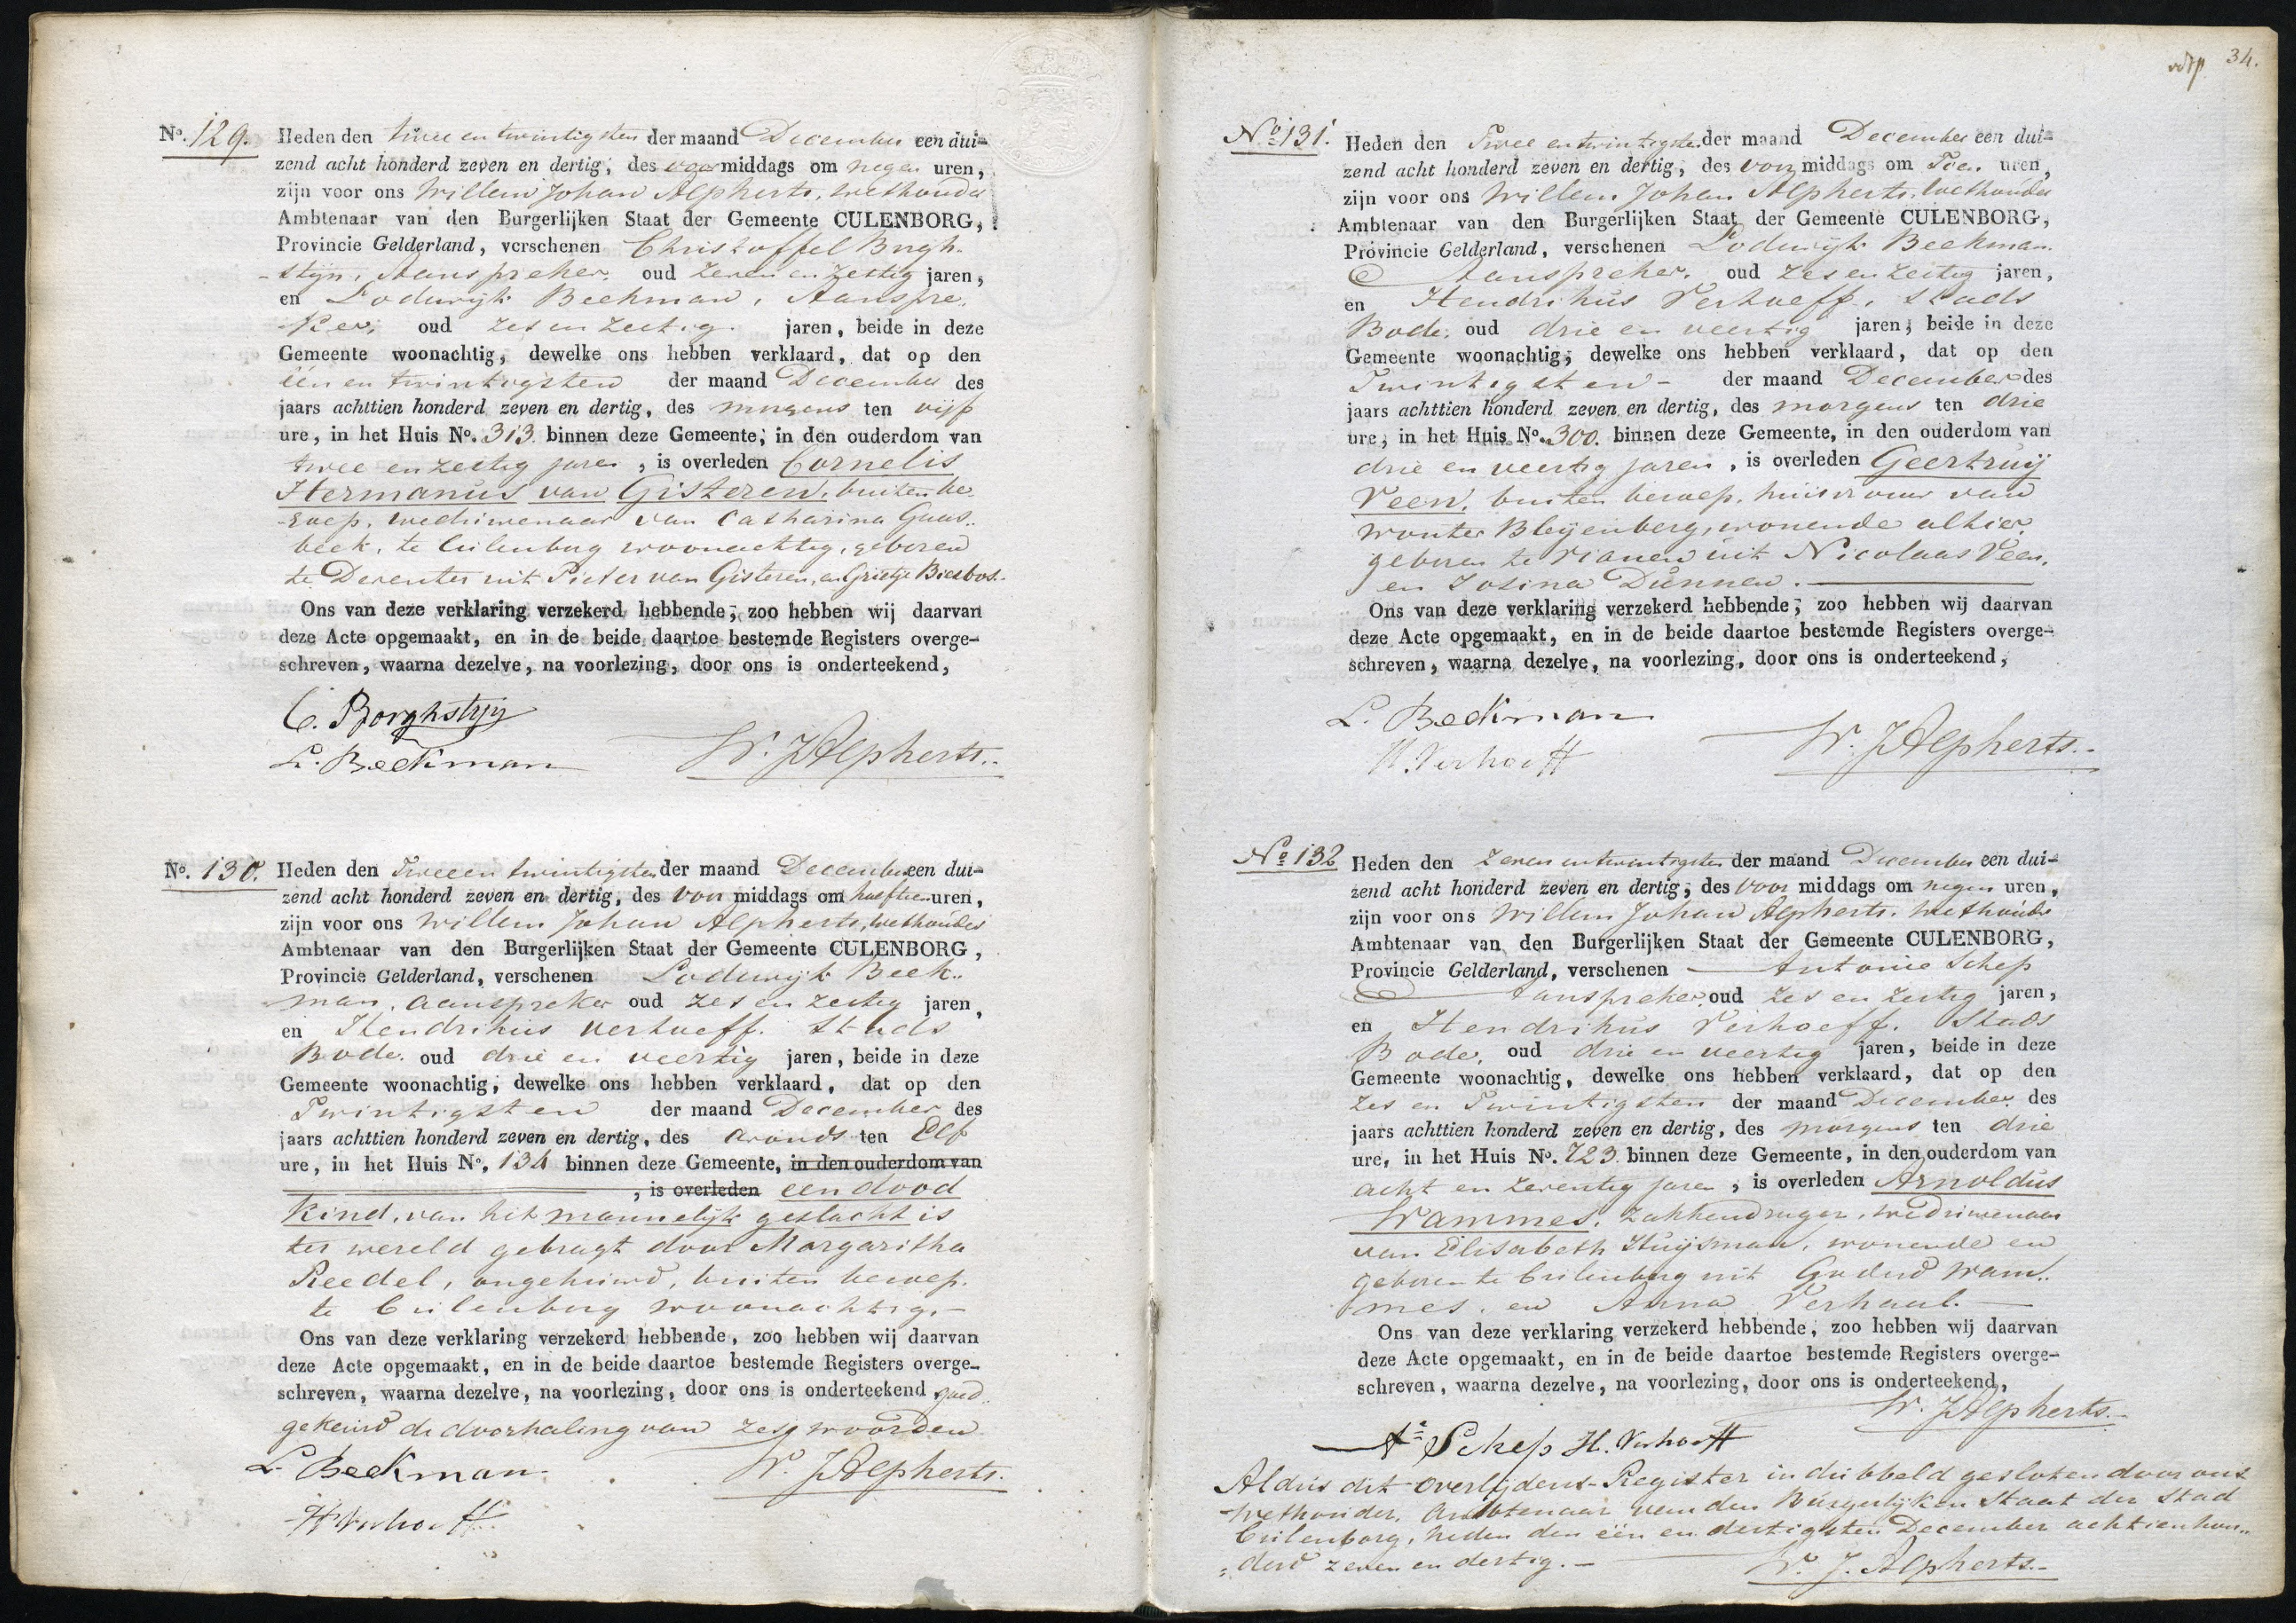 No. 129. Heden den twee en twintigsten der maand December een dui-
zend acht honderd zeven en dertig, des voormiddags om negen uren,
zijn voor ons Willem Johan Alpherts, wethouder
Ambtenaar van den Burgerlijken Staat der Gemeente CULENBORG,
Provincie Gelderland, verschenen Christoffel Brugh-
-stijn, Aanspreker, oud zeven en zestig jaren,
en Lodewijk Beekman, Aanspre-
ker, oud zes en zestig jaren, beide in deze
Gemeente woonachtig, dewelke ons hebben verklaard, dat op den
één en twintigsten der maand December des
jaars achttien honderd zeven en dertig, des morgens ten vijf
ure, in het Huis No. 313. binnen deze Gemeente, in den ouderdom van
twee en zestig jaren, is overleden Cornelis
Hermanus van Gisteren, buiten be-
-roep, weduwenaar van Catharina Gaas-
beek, te Culenburg woonachtig, geboren
te Deventer uit Pieter van Gisteren, en Grietje Biesbos.
Ons van deze verklaring verzekerd hebbende, zoo hebben wij daarvan
deze Acte opgemaakt, en in de beide daartoe bestemde Registers overge-
schreven, waarna dezelve, na voorlezing, door ons is onderteekend,
C. Borghstijn
L. Beekman W. J. Alpherts.
No. 130. Heden den Twee en twintigsten der maand December een dui-
zend acht honderd zeven en dertig, des voor middags om half tien uren,
zijn voor ons Willem Johan Alpherts, wethouder
Ambtenaar van den Burgerlijken Staat der Gemeente CULENBORG,
Provincie Gelderland, verschenen Lodewijk Beek-
man, aanspreker oud zes en zestig jaren,
en Hendrikus Verhoeff. Stads
Bode. oud drie en veertig jaren, beide in deze
Gemeente woonachtig, dewelke ons hebben verklaard, dat op den
Twintigsten der maand December des
jaars achttien honderd zeven en dertig, des avonds ten Elf
ure, in het Huis No. 134 binnen deze Gemeente, in den ouderdom van
, is overleden een dood
Kind, van het mannelijk geslacht is
ter wereld gebragt door Margaritha
Reedel, ongehuwd, buiten beroep.
te Culenburg woonachtig.
Ons van deze verklaring verzekerd hebbende, zoo hebben wij daarvan
deze Acte opgemaakt, en in de beide daartoe bestemde Registers overge-
schreven, waarna dezelve, na voorlezing, door ons is onderteekend goed
gekeurd de doorhaling van zes woorden
L. Beekman W. J. Alpherts.
H Verhoeff
34.
No 131. Heden den Twee en twintigsten der maand December een dui-
zend acht honderd zeven en dertig, des voor middags om Tien uren,
zijn voor ons Willem Johan Alpherts, Wethouder
Ambtenaar van den Burgerlijken Staat der Gemeente CULENBORG,
Provincie Gelderland, verschenen Lodewijk Beekman
Aanspreker, oud zes en zestig jaren,
en Hendrikus Verhoeff, Stads
Bode, oud drie en veertig jaren, beide in deze
Gemeente woonachtig, dewelke ons hebben verklaard, dat op den
Twintigsten - der maand December des
jaars achttien honderd zeven en dertig, des morgens ten drie
ure, in het Huis No. 300. binnen deze Gemeente, in den ouderdom van
drie en veertig jaren, is overleden Geertruij
Veen, buiten beroep, huisvrouw van
Wouter Bleijenberg, wonende alhier
geboren te Vianen uit Nicolaas Veen,
en Josina Dunnen.
Ons van deze verklaring verzekerd hebbende, zoo hebben wij daarvan
deze Acte opgemaakt, en in de beide daartoe bestemde Registers overge-
schreven, waarna dezelve, na voorlezing, door ons is onderteekend,
L. Beekman
H. Verhoeff W. J. Alpherts.
No 132 Heden den zeven en twintigsten der maand December een dui-
zend acht honderd zeven en dertig, des voor middags om negen uren,
zijn voor ons Willem Johan Alpherts. Wethouder
Ambtenaar van den Burgerlijken Staat der Gemeente CULENBORG,
Provincie Gelderland, verschenen Antonie Schep
Aanspreker, oud zes en zestig jaren,
en Hendrikus Verhoeff. Stads
Bode, oud drie en veertig jaren, beide in deze
Gemeente woonachtig, dewelke ons hebben verklaard, dat op den
zes en Twintigsten der maand December des
jaars achttien honderd zeven en dertig, des morgens ten drie
ure, in het Huis No. 723. binnen deze Gemeente, in den ouderdom van
acht en zeventig jaren, is overleden Arnoldus
Wammes, Zakkendrager, weduwenaar
van Elisabeth Huijsman, wonende en
geboren te Culenburg uit Goderd Wam-
mes, en Anna Verhaul.
Ons van deze verklaring verzekerd hebbende, zoo hebben wij daarvan
deze Acte opgemaakt, en in de beide daartoe bestemde Registers overge-
schreven, waarna dezelve, na voorlezing, door ons is onderteekend,
W. J. Alpherts.
Ae Schep H. Verhoeff
Aldus dit Overlijdens-Register in dubbeld gesloten door ons
Wethouder, Ambtenaar van den Burgerlijken Staat der Stad
Culenborg, heden den één en dertigsten December achtienhon-
derd zeven en dertig.
W. J. Alpherts.